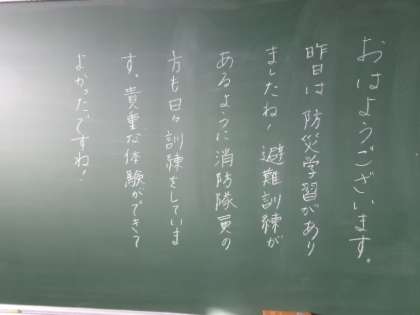 おはようございます。
昨日は防災学習があり
ましたね！避難訓練が
あるように消防隊員の
方も日々訓練をしていま
す。貴重な体験ができて
よかったですね！